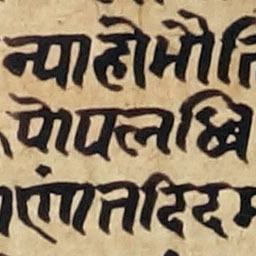 न्पाहोमौति
पोपलब्धि
णांतदिदम